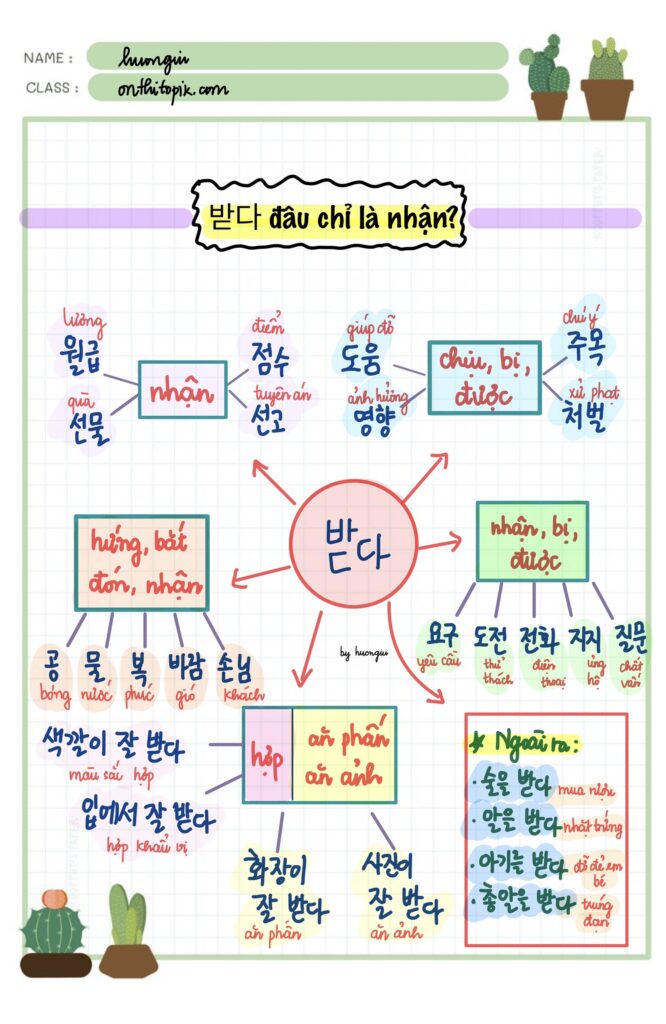 NAME : huongiu
CLASS : onthitopik.com
받다 đâu chỉ là nhận?
lương
월급
quà
선물
nhận
điểm
점수
tuyên án
선고
giúp đỡ
도움
ảnh hưởng
영향
chịu, bị,
được
chú ý
주목
xử phạt
처벌
받다
by huongiu
hứng, bắt
đón, nhận
공 물 복 바람 손님
bóng nước phúc gió khách
nhận, bị,
được
요구 도전 전화 지지 질문
yêu cầu
thử
thách
điện
thoại
ủng
hộ
chất
vấn
색깔이 잘 받다
màu sắc hợp
입에서 잘 받다
hợp khẩu vị
hợp
ăn phấn
ăn ảnh
화장이
잘 받다
ăn phấn
사진이
잘 받다
ăn ảnh
* Ngoài ra:
· 술을 받다 mua rượu
· 알을 받다 nhặt trứng
· 아기를 받다 đỡ đẻ em
bé
· 총알을 받다 trúng
đạn